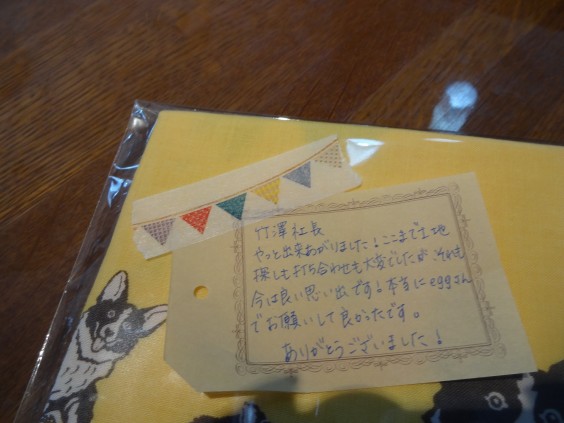 竹澤社長
やっと出来あがりました！ここまで土地
探しも打ち合わせも大変でしたが それも
今は良い思い出です！本当にeggさん
でお願いして良かったです。
ありがとうございました！